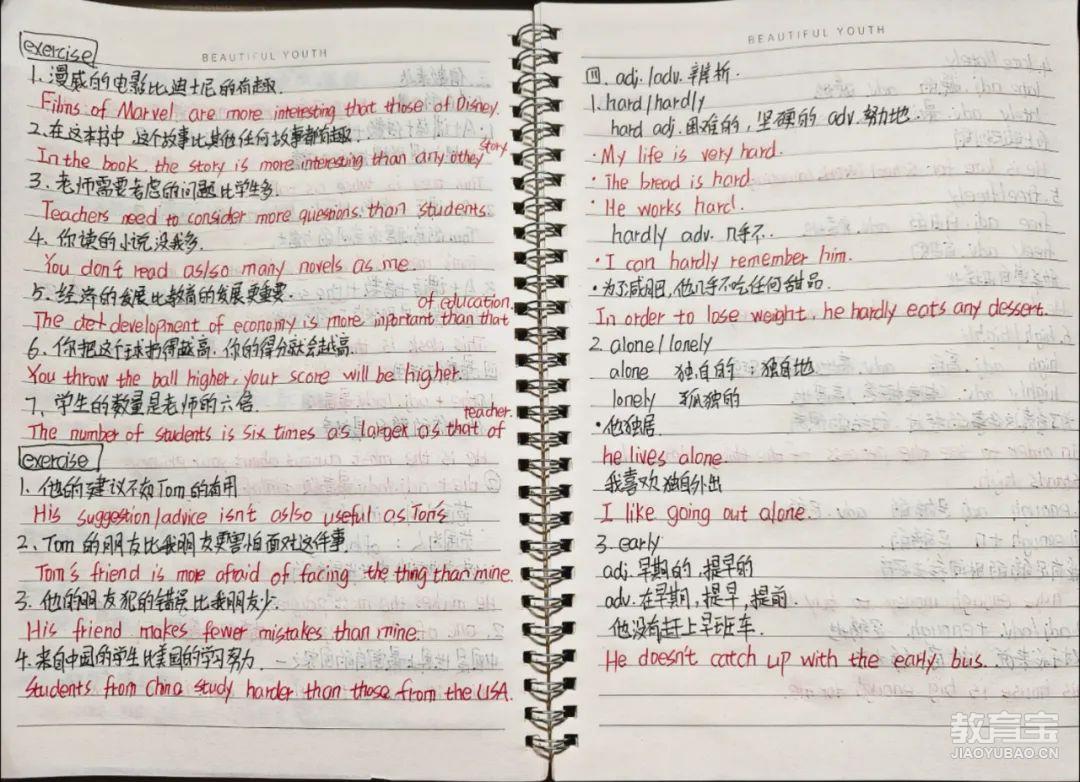 exercise
BEAUTIFUL YOUTH
1. 漫威的电影比迪士尼的有趣.
Films of Marvel are more interesting that those of Disney.
2. 在这本书中,这个故事比其他任何故事都有趣.
story
In the book, the story is more interesting than any othey
3. 老师需要考虑的问题比学生多.
Teachers need to consider more questions than students.
4. 你读的小说没我多.
You don't read as/so many novels as me.
5. 经济的发展比教育的发展更重要.
of education.
The det development of economy is more inportant than that
6. 你把这个球扔得越高,你的得分就会越高.
You throw the ball higher, your score will be higher.
7. 学生的数量是老师的六倍.
teacher.
The number of students is six times as larger as that of
exercise
1. 他的建议不如Tom的有用
His suggestion/advice isn't as/so useful as Tom's
2. Tom的朋友比我朋友更害怕面对这件事.
Tom's friend is more afraid of facing the thing than mine.
3. 他的朋友犯的错误比我朋友少.
His friend makes fewer mistakes than mine.
4. 来自中国的学生比美国的学习努力.
Students from China study harder than those from the USA.
BEAUTIFUL YOUTH
四. adj./adv. 辨析.
1. hard/hardly
hard adj. 困难的, 坚硬的 adv. 努力地.
·My life is very hard.
·The bread is hard.
·He works hard.
hardly adv. 几乎不.
·I can hardly remember him.
·为了减肥,他几乎不吃任何甜品.
In order to lose weight, he hardly eats any dessert.
2. alone/lonely
alone 独自的;独自地
lonely 孤独的
·他独居.
he lives alone
我喜欢独自外出
I like going out alone.
3. early
adj. 早期的,提早的
adv. 在早期,提早,提前.
他没有赶上早班车.
He doesn't catch up with the early bus.
教育宝
JIAOYUBAO.CN